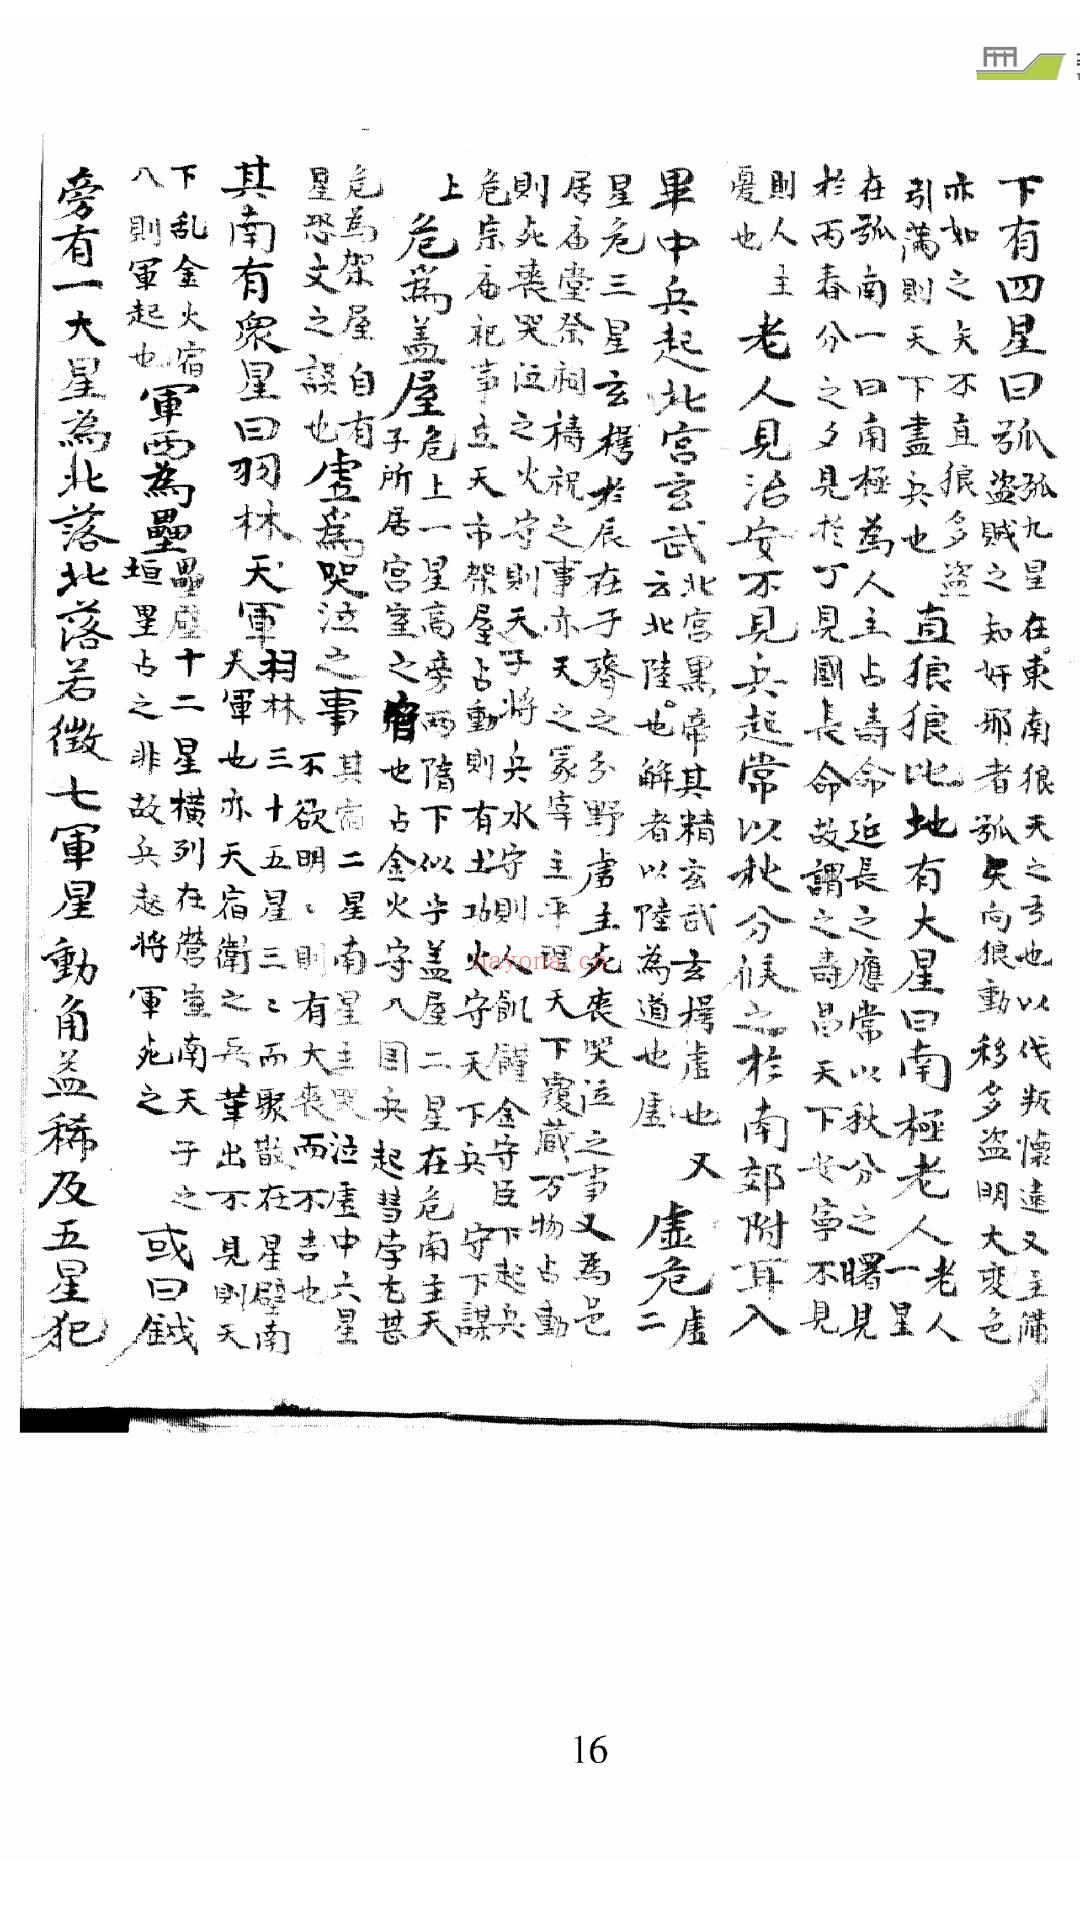 下有四星曰弧
弧九星在東南狼天之弓也以伐叛懷遠又主備
盜賊之知奸邪者弧矢向狼動移多盜明大変色
亦如之矢不直狼多盜
引滿則天下盡兵也
直狼狼比地有大星曰南極老人
老人
一星
在弧南一曰南極為人主占壽命延長之應常以秋分之曙見
於丙春分之夕見於丁見國長命故謂之壽昌天下安寧不見
則人主
憂也
老人見治安不見兵起常以秋分候之於南郊附耳入
畢中兵起北宮玄武
北宮黑帝其精玄武玄枵虛也又
云北陸也解者以陸為道也虛
虛危
虛
二
星危三星玄枵於辰在子齊之分野虛主死喪哭泣之事又為邑
居庙堂祭祠禱祝之事亦天之冢宰主平理天下覆藏万物占動
則死喪哭泣之火守則天子將兵水守則人飢饉金守臣下起兵
危宗庙祀事立天市架屋占動則有土功火守天下兵守下謀
上
危為盖屋
危上一星高旁兩隋下似乎盖屋二星在危南主天
子所居宮室之官也占金火守入囯兵起彗孛尤甚
危為架屋自有
星恐文之誤也
虛為哭泣之事
其宿二星南星主哭泣虛中六星
不欲明〻則有大喪而不吉也
其南有衆星曰羽林天軍
羽林三十五星三〻而聚散在星壁南
天軍也亦天宿衛之兵革出不見則天
下乱金火宿
八則軍起也
軍西為壘
壘壁十二星橫列在營室南天子之
垣壘占之非故兵起將軍死之
或曰鉞
旁有一大星為北落北落若微七軍星動角益稀及五星犯
nayona.cn
16